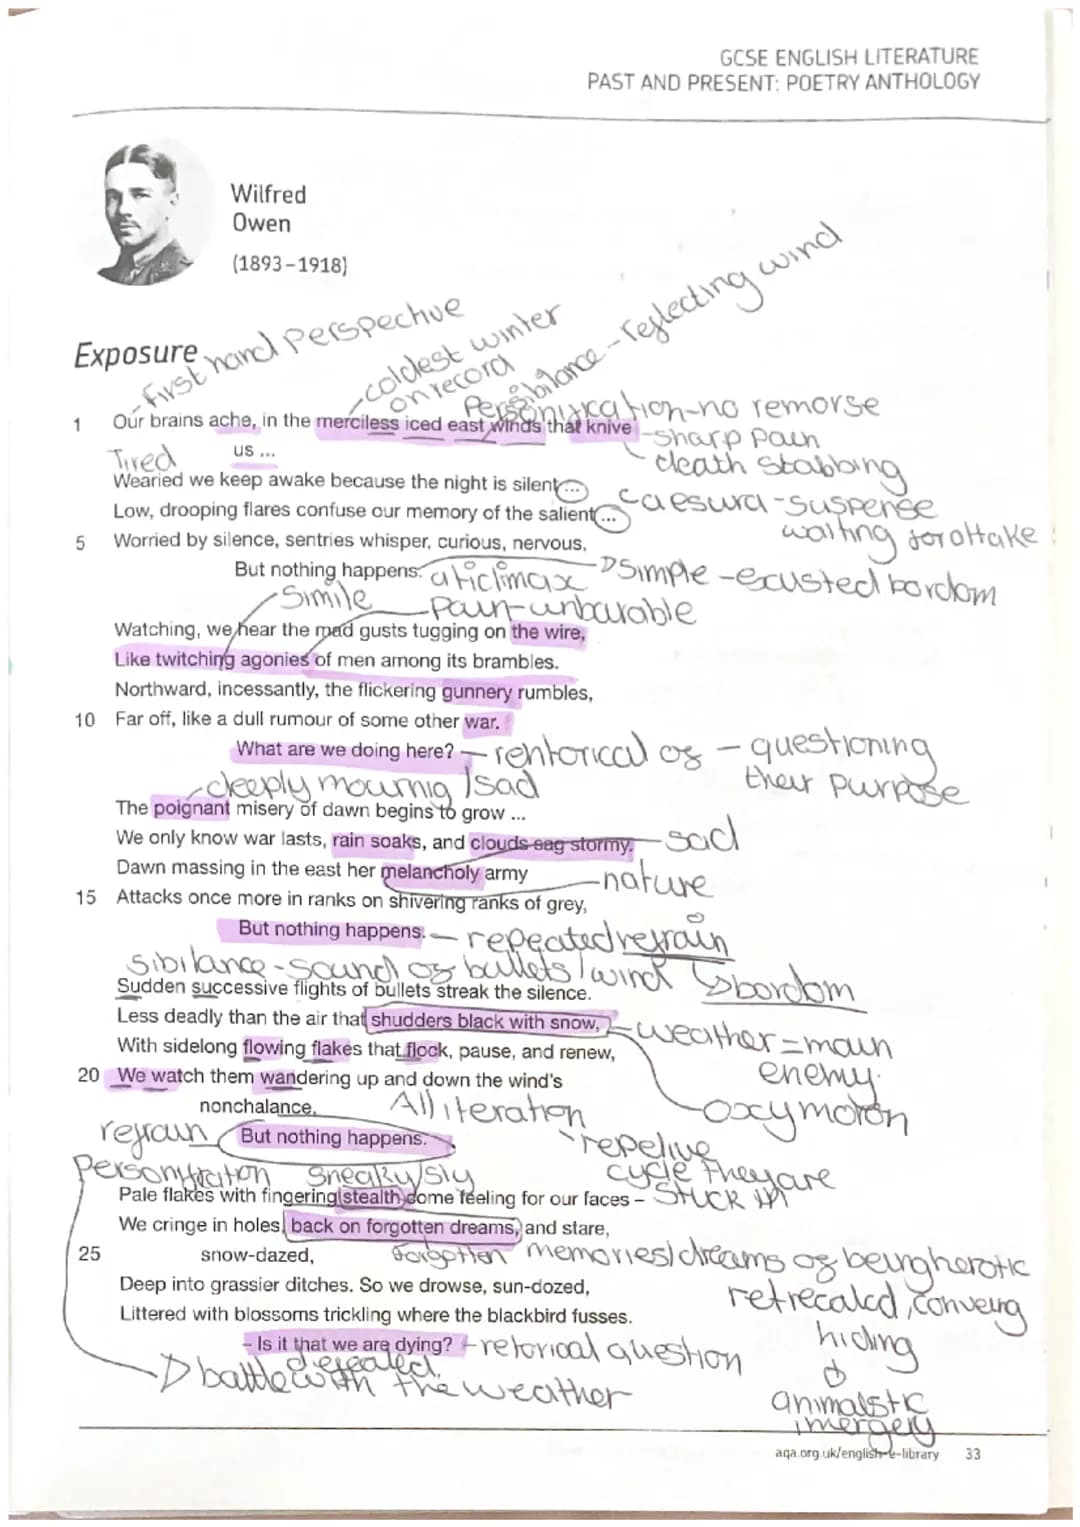 GCSE ENGLISH LITERATURE
PAST AND PRESENT: POETRY ANTHOLOGY
Wilfred
Owen
(1893–1918)
Exposure
first hand perspective
coldest winter
on record
sibilance - reflecting wind
Personification-no remorse
1 Our brains ache, in the merciless iced east winds that knive
us ...
sharp pain
death stabbing
Tired
Wearied we keep awake because the night is silent ...
Low, drooping flares confuse our memory of the salient ...
caesura - suspense
waiting for attake
5 Worried by silence, sentries whisper, curious, nervous,
But nothing happens.
aticlimax
simple - exusted bordom
Simile
Pain-unbarable
Watching, we hear the mad gusts tugging on the wire,
Like twitching agonies of men among its brambles.
Northward, incessantly, the flickering gunnery rumbles,
10 Far off, like a dull rumour of some other war.
What are we doing here?
rehtorical of - questioning
their purpose
deeply mournig / sad
The poignant misery of dawn begins to grow ...
We only know war lasts, rain soaks, and clouds sag stormy.
sad
Dawn massing in the east her melancholy army
nature
15 Attacks once more in ranks on shivering ranks of grey,
But nothing happens.
repeated refrain
bordom
sibilance - sound of bullets / wind
Sudden successive flights of bullets streak the silence.
Less deadly than the air that shudders black with snow,
weather = main
enemy.
oxymoron
With sidelong flowing flakes that flock, pause, and renew,
20 We watch them wandering up and down the wind's
nonchalance,
Alliteration
refrain
But nothing happens.
repetive
cycle they are
stuck in
Personifcation
Sneaky/sly
Pale flakes with fingering stealth come feeling for our faces –
We cringe in holes, back on forgotten dreams, and stare,
25 snow-dazed,
forgotten memories/dreams of being herotic
Deep into grassier ditches. So we drowse, sun-dozed,
retrecaled, conveing
hiding
Littered with blossoms trickling where the blackbird fusses.
– Is it that we are dying?
retorical question
defeated
battle with the weather
animalstic
imergery
aqa.org.uk/english-e-library 33